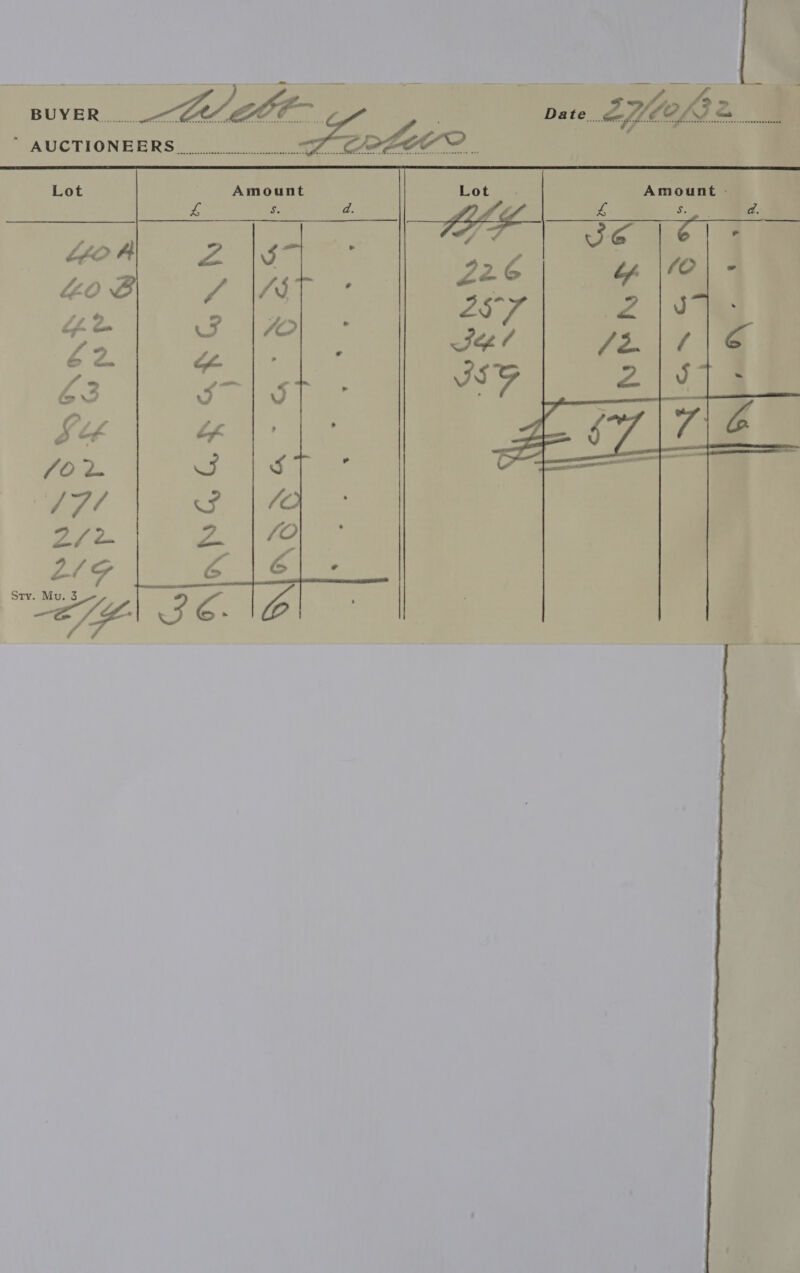 BUYER Date 27/10/32
AUCTIONEERS
Lot Amount
£ s. d.
40 A 2 5 -
40 B 1 15 -
42 3 10 -
62 4 - -
63 5 5 -
84 4 - -
102 3 5 -
171 3 10 -
212 2 10 -
219 6 6 -
Sty. Mu. 3
C/F 36. 6 -
Lot Amount
£ s. d.
B/F 36 6 -
226 4 10 -
257 2 5 -
341 12 1 6
359 2 5 -
£ 57 7 6